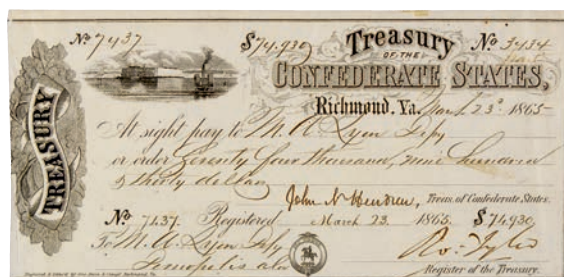 No. 7437 $74,930 Treasury No. 3434
OF THE
CONFEDERATE STATES,
Richmond, Va. March 23d 1865
TREASURY
At sight pay to M. A. Lyon Depy
or order Seventy four thousand, nine hundred
& thirty dollars
John N. Hendren, Treas. of Confederate States.
No. 7437. Registered March 23. 1865. $74930.
To M. A. Lyon Depy Ro. Tyler
Demopolis ala Register of the Treasury.